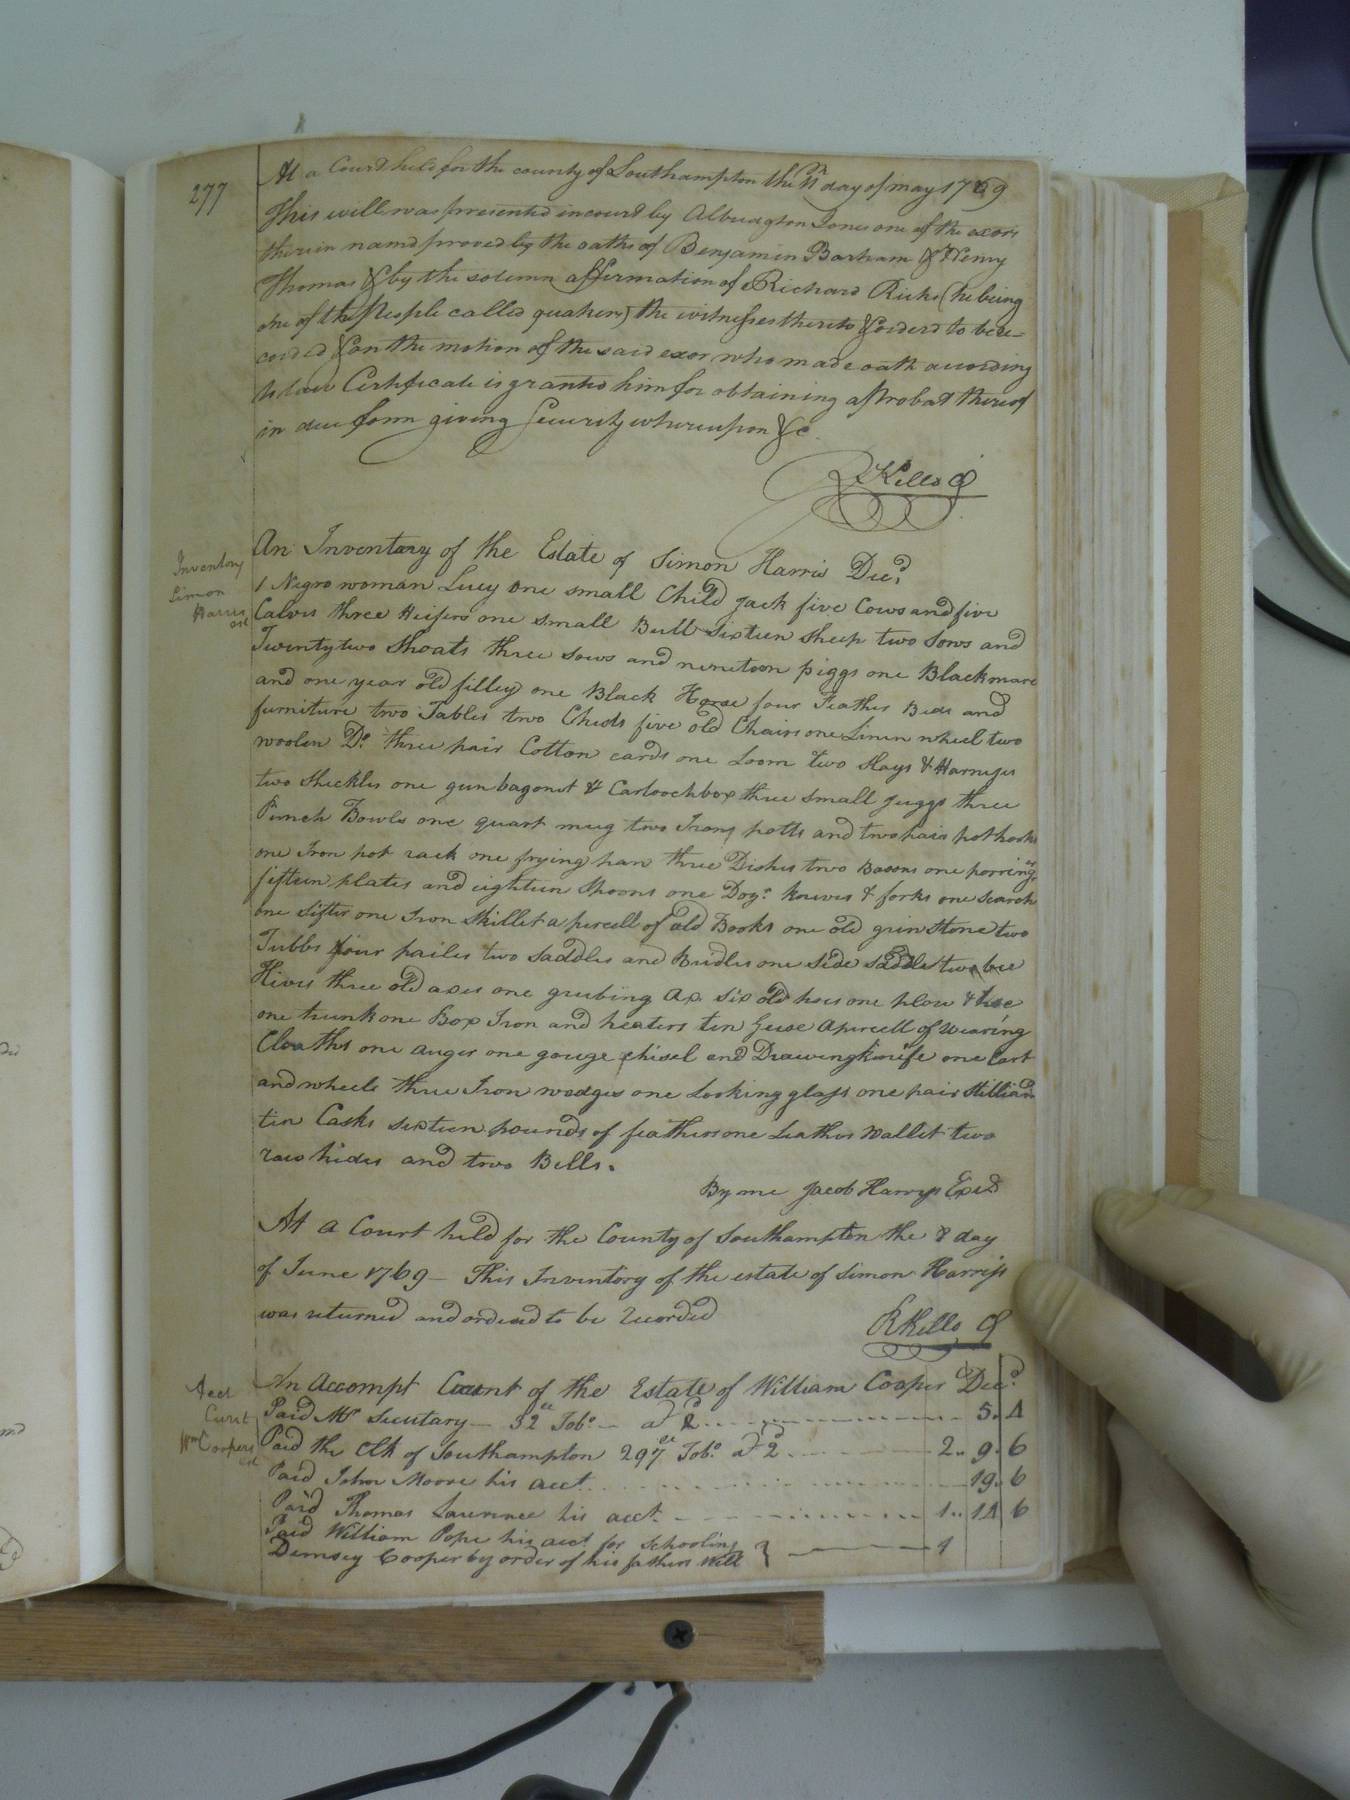 277
At a Court held for the county of Southampton the 11th day of may 1769
This will was presented in court by Albridgton Jones one of the exors
therein namd proved by the oaths of Benjamin Barham & Henry
Thomas & by the solemn affirmation of Richard Ricks (he being
one of the People called quakers) the witnesses thereto & orderd to be re-
corded & on the motion of the said exor who made oath according
to law Certificate is granted him for obtaining a Probat thereof
in due form giving Security whereupon &c
RKello C
Inventory
Simon
Harris
est
An Inventory of the Estate of Simon Harris Decd
1 Negro woman Lucy one small Child Jack five Cows and five
Calves three Heifers one small Bull sixteen sheep two Sows and
Twenty two Shoats three sows and nineteen piggs one Black mare
and one year old filley one Black Horse four Feather Beds and
furniture two Tables two Chests five old Chairs one Linen wheel two
woolen Do three pair Cotton cards one Loom two Slays & Harneses
two Sheckles one gun bagonet & Cartoochbox three small Juggs three
Punch Bowls one quart mug two Irons potts and two pair pothooks
one Iron pot rack one frying pan three Dishes two Basons one porringer
fifteen plates and eighteen Spoons one Doz. knives & forks one search
one Sifter one Iron Skillet a percell of old Books one old grin Stone two
Tubbs four pailes two Saddles and Bridles one Side Saddle two bee
Hives three old axes one grubing Ax six old hoes one plow & hoe
one trunk one Box Iron and heaters ten Geese a percell of wearing
Cloaths one auger one gouge chisel and Drawing knife one Cart
and wheels three Iron wedges one Looking glass one pair Stilliards
ten Casks sixteen pounds of feathers one Leather Wallet two
raw hides and two Bells.
By me Jacob Harriss Exed
At a Court held for the County of Southampton the 8 day
of June 1769 - This Inventory of the estate of Simon Harriss
was returned and ordered to be recorded
RKello C
Acct
Curt
Wm Coopers
est
An Accompt Curent of the Estate of William Cooper Decd
Paid Mr Secutary - 32 lb Tobo - at 2 5.4
Paid the Clk of Southampton 297 lb Tobo at 2 2..9.6
Paid John Moore his acct 19.6
Paid Thomas Laurence his acct. 1..14 6
Paid William Pope his acct for Schooling
Demsey Cooper by order of his fathers Will } 4